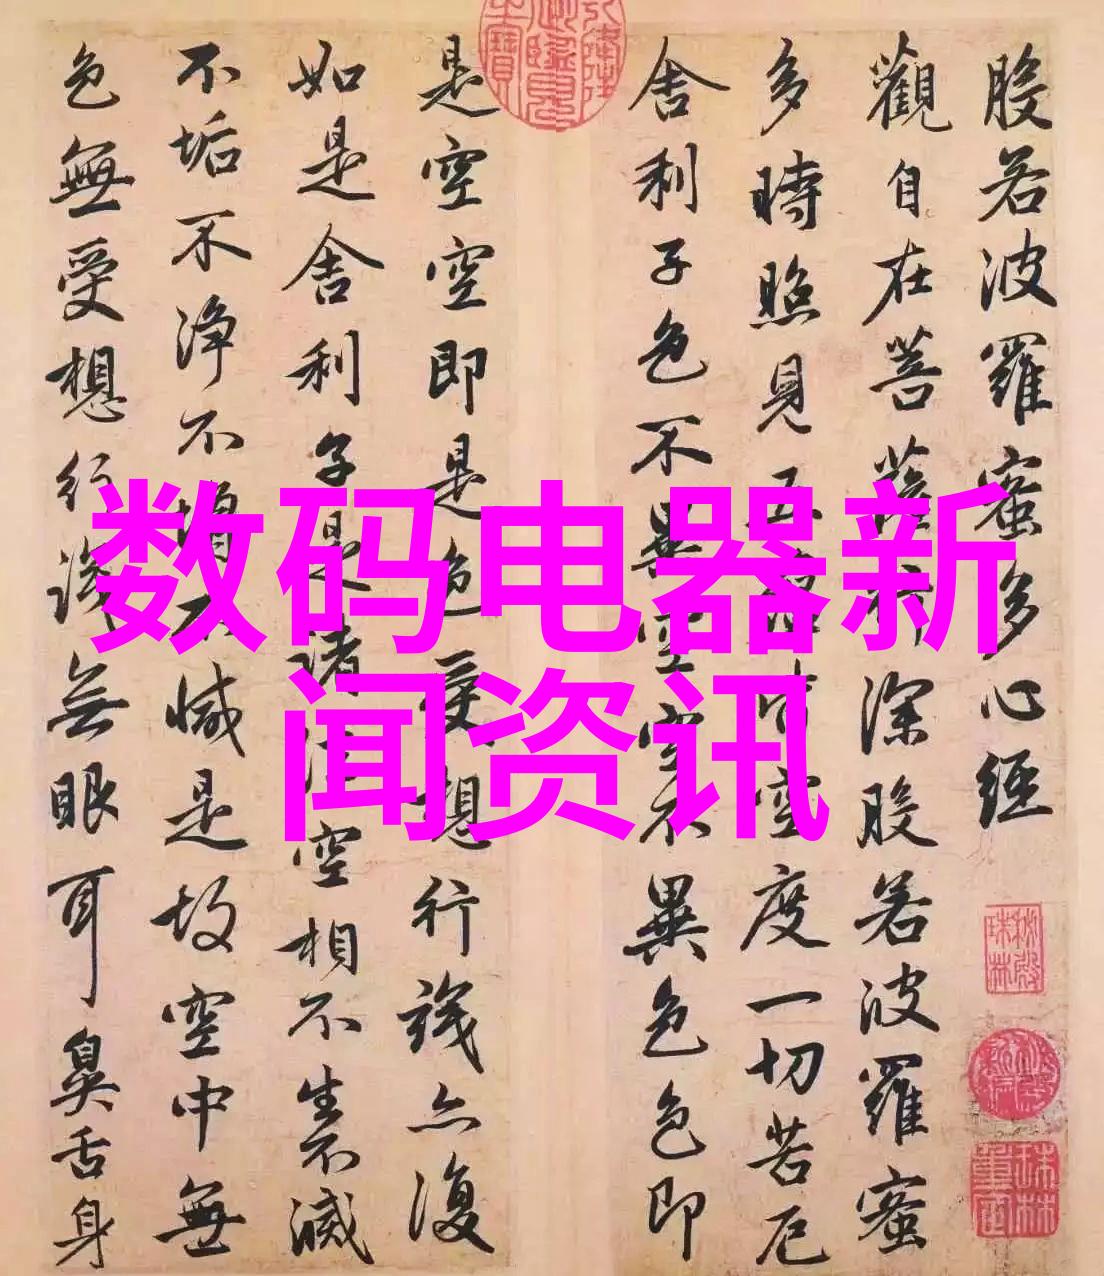 般若波羅蜜多心經
觀自在菩薩行深般若波羅蜜
多時照見五蘊皆空度一切苦厄
舍利子色不異空空不異色色即
是空空即是色受想行識亦復
如是舍利子是諸法空相不生不滅
不垢不净不增不減是故空中無
色無受想行識無眼耳鼻舌身
数码电器新
闻资讯